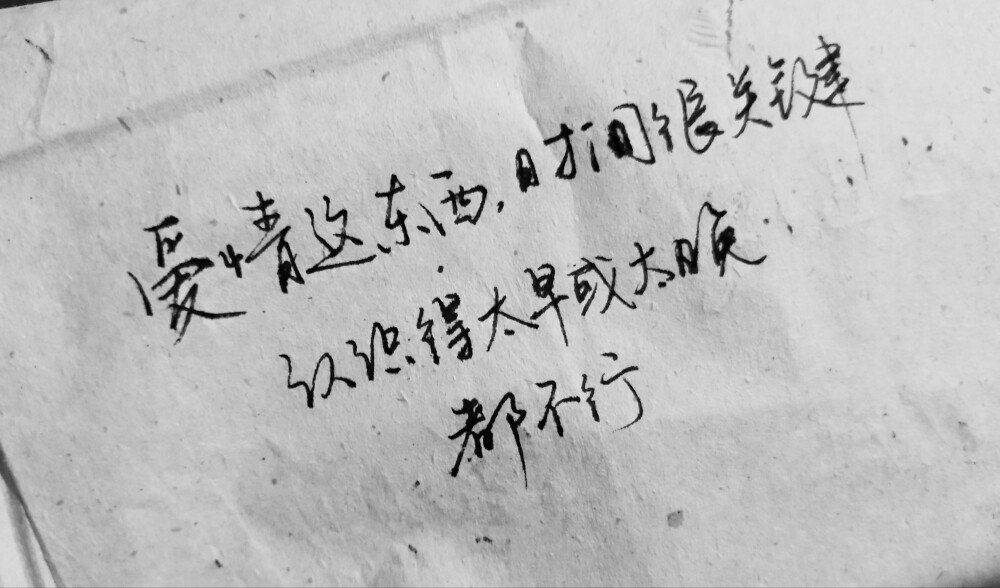 爱情这东西,时间很关键
认识得太早或太晚
都不行